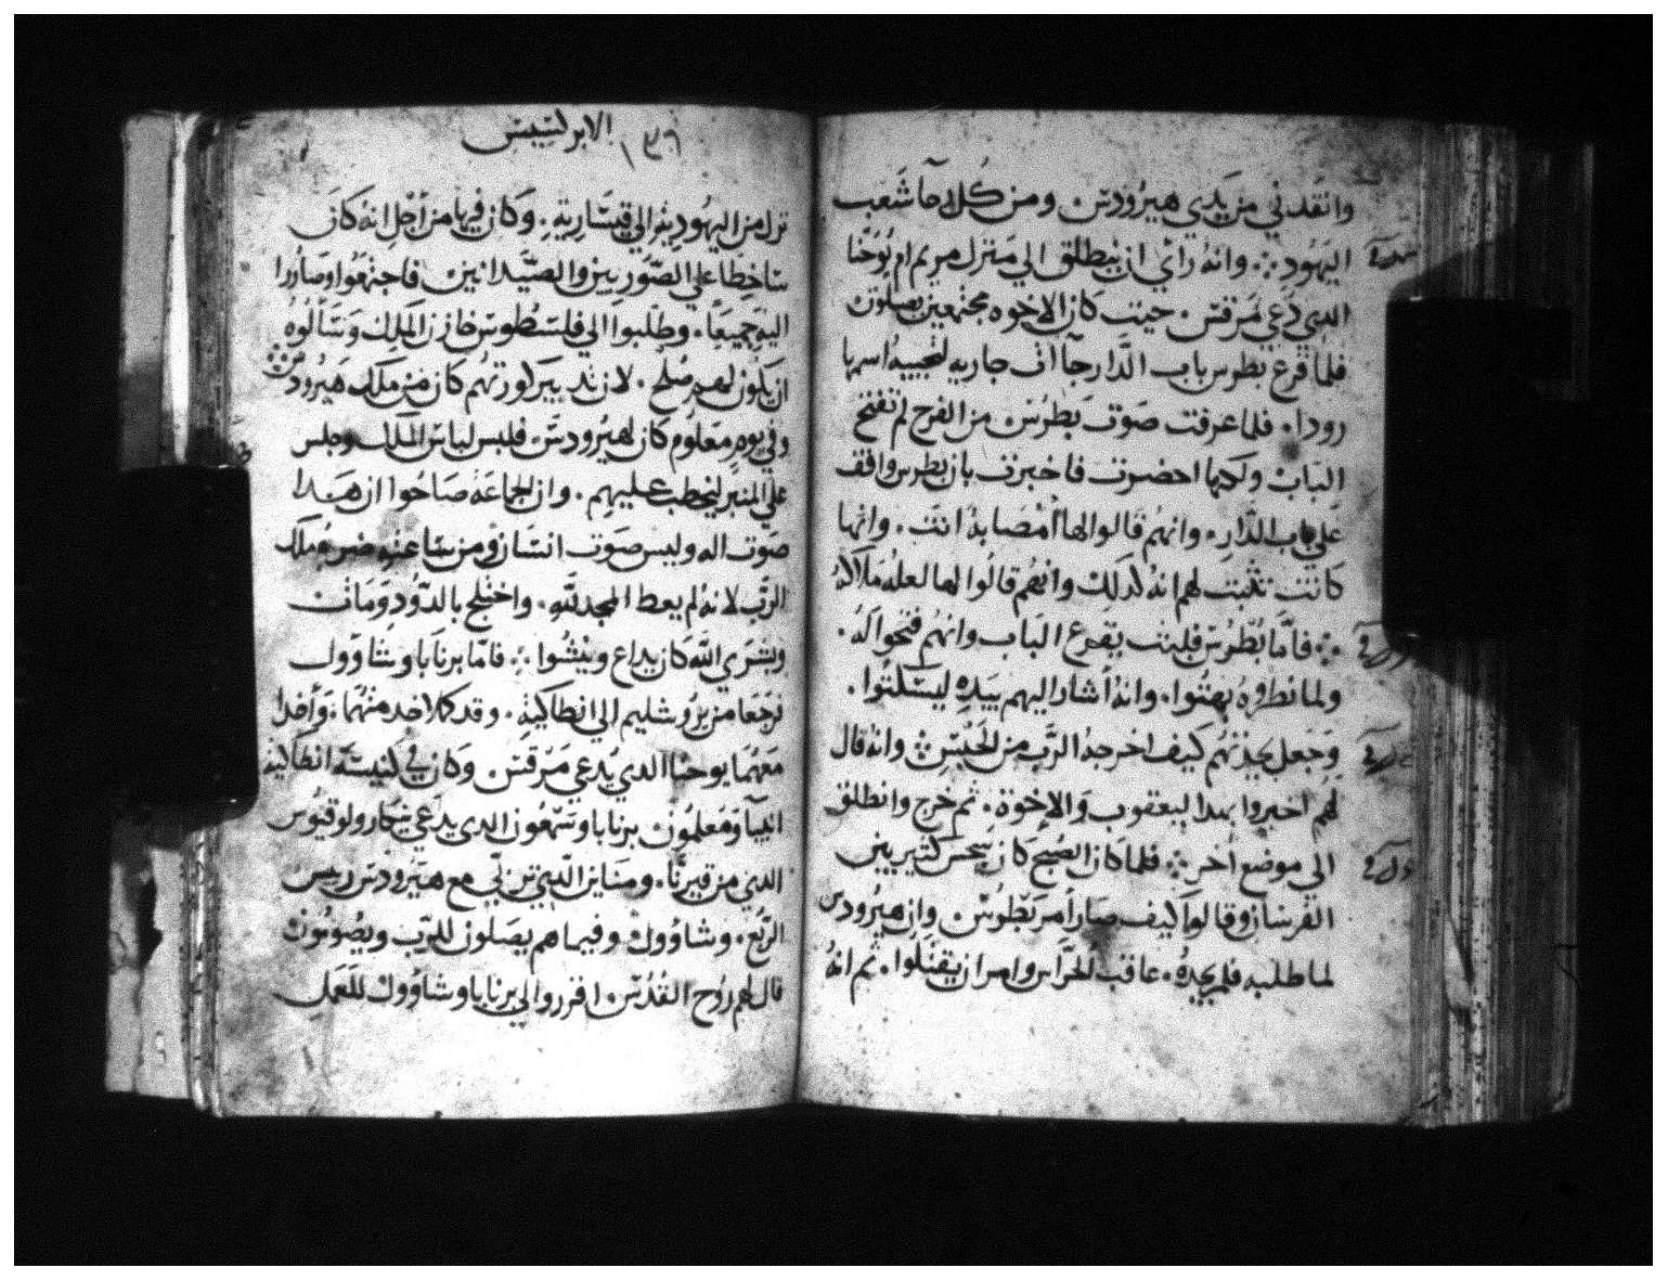 وانقدني من يدي هيرودس ومن كل رجآ شعب
اليهود ؞ وانه راي ان ينطلق الي منزل مريم ام يوحنا
الدي دعي مرقس . حيت كان الاخوه مجتمعين يصلون
فلما قرع بطرس باب الدار جآات جاريه لتجيبه اسمها
رودا . فلما عرفت صوت بطرس من الفرح لم تفتح
الباب ولكنها احضرت فاخبرت بان بطرس واقف
علي باب الدار . وانهم قالوا لها امصابة انت . وانها
كانت تثبت لهم انه لدلك وانهم قالوا لها لعله ملاكه
؞ فاما بطرس فلبث يقرع الباب وانهم فتحوا له .
ولما نطروه بهتوا . وانه أشار اليهم بيده ليسكتوا .
وجعل يحدثهم كيف اخرجه الرب من الحبس ؞ وانه قال
لهم اخبروا بهدا ليعقوب والاخوة . ثم خرج وانطلق
الي موضع اخر ؞ فلما كان الصبح كان سجس كثير بين
الفرسان وقالوا كيف صار أمر بطرس . وان هيرودس
لما طلبه فلم يجده . عاقب الحراس وامر ان يقتلوا . ثم انه
الابركسيس
١٣٦
نزل من اليهودية الي قيسارية . وكان فيها من أجل انه كان
ساخطا علي الصوريين والصيدانيين فاجتمعوا وصاروا
اليه جميعا . وطلبوا الي فلسطوس خازن الملك وسالوه
ان يكون لهم صلح . لان تدبير كورتهم كان من ملك هيرودس ؞
وفي يوم معلوم كان لهيرودس فلبس لباس الملك وجلس
علي المنبر ليخطب عليهم . وان الجماعة صاحوا ان هدا
صوت اله وليس صوت انسان ومن ساعته ضربه ملاك
الرب لانه لم يعط المجد لله . واختلج بالدود ومات
وبشري الله كان يداع وينشوا ؞ فاما برنابا وشاوول
فرجعا من يروشليم الي انطاكية . وقد كملا خدمتهما . وأخدا
معهما يوحنا الدي يدعي مرقس . وكان في كنيسة انطاكية
انبيآ ومعلمون برنابا وسمعون الدي يدعي نيكار ولوقيوس
الدي من قيرنا . ومناين الدي تربي مع هيرودس رييس
الربع . وشاوول وفيما هم يصلون للرب ويصومون
قال لهم روح القدس . افرزوا لي برنابا وشاوول للعمل